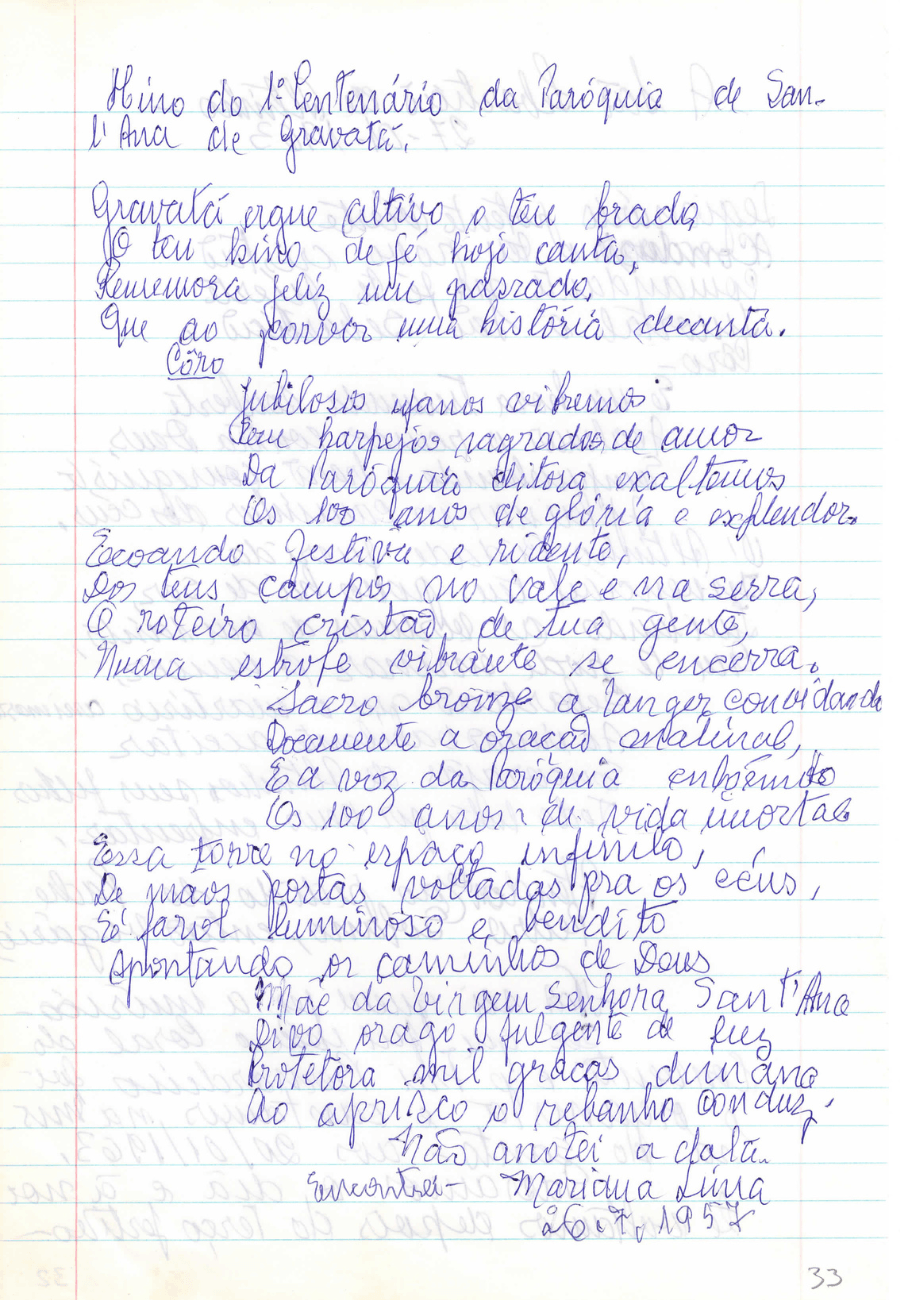 Hino do 1º Centenário da Paróquia de San-
t'Ana de Gravatá.
Gravatá ergue altivo o teu brado
O teu hino de fé hoje canta,
Rememora feliz um passado,
Que ao porvir uma história decanta.
Côro
Jubilosos ufanos vibremos
Com harpejos sagrados de amor
Da Paróquia ditosa exaltemos
Os 100 anos de glória e explendor.
Ecoando festiva e ridente,
Dos teus campos no vale e na serra,
O roteiro cristão de tua gente,
Numa estrofe vibrante se encerra.
Sacro bronze a tanger convidando
Docemente a oração matinal,
É a voz da Paróquia
Os 100 anos de vida imortal
Essa torre no espaço infinito,
De mãos postas voltadas pra os céus,
É farol luminoso e bendito
Apontando os caminhos de Deus
Mãe da Virgem Senhora Sant'Ana
Divo orago fulgente de luz
Protetora mil graças dimana
Ao aprisco o rebanho conduz.
Não anotei a data.
Encontrei- Mariana Lima
26.7.1957
33